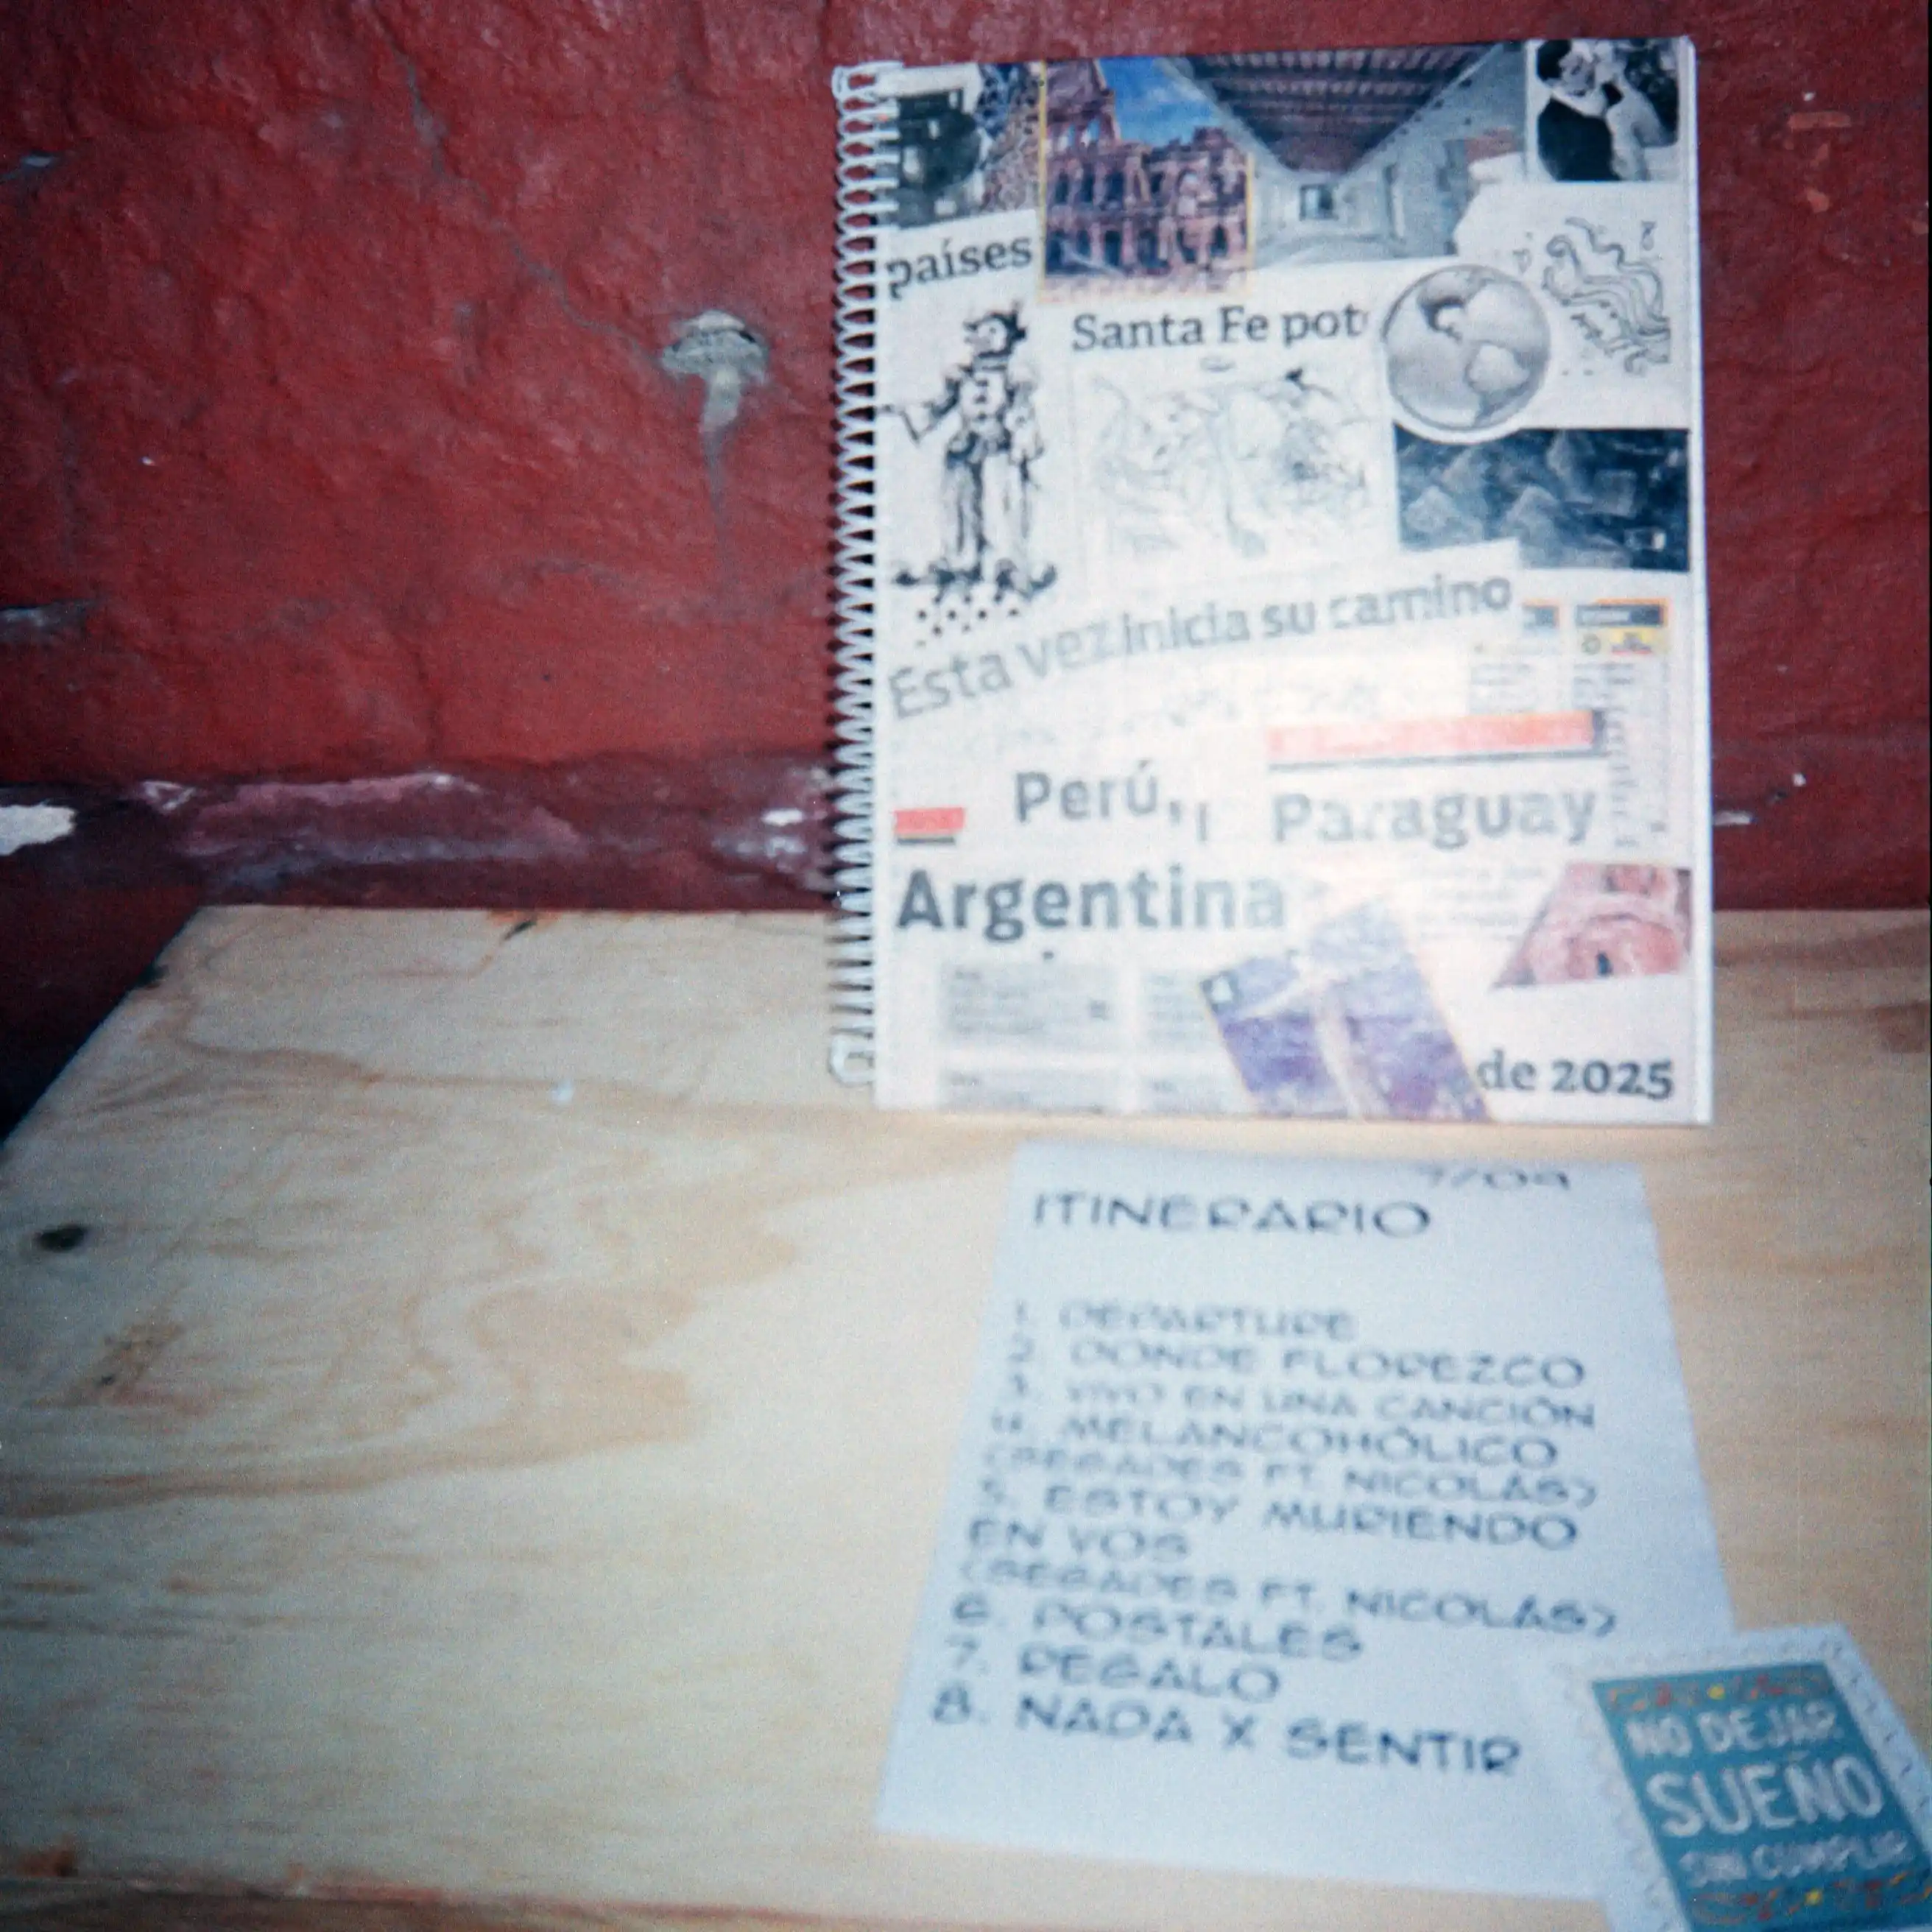 países
Santa Fe pot
Esta vez inicia su camino
Perú,
Paraguay
Argentina
de 2025
7/09
ITINERARIO
1. DEPARTURE
2. DONDE FLOREZCO
3. VIVO EN UNA CANCIÓN
4. MELANCOHÓLICO
(SEGADES FT. NICOLÁS)
5. ESTOY MURIENDO
EN VOS
(SEGADES FT. NICOLÁS)
6. POSTALES
7. REGALO
8. NADA X SENTIR
NO DEJAR
SUEÑO
SIN CUMPLIR